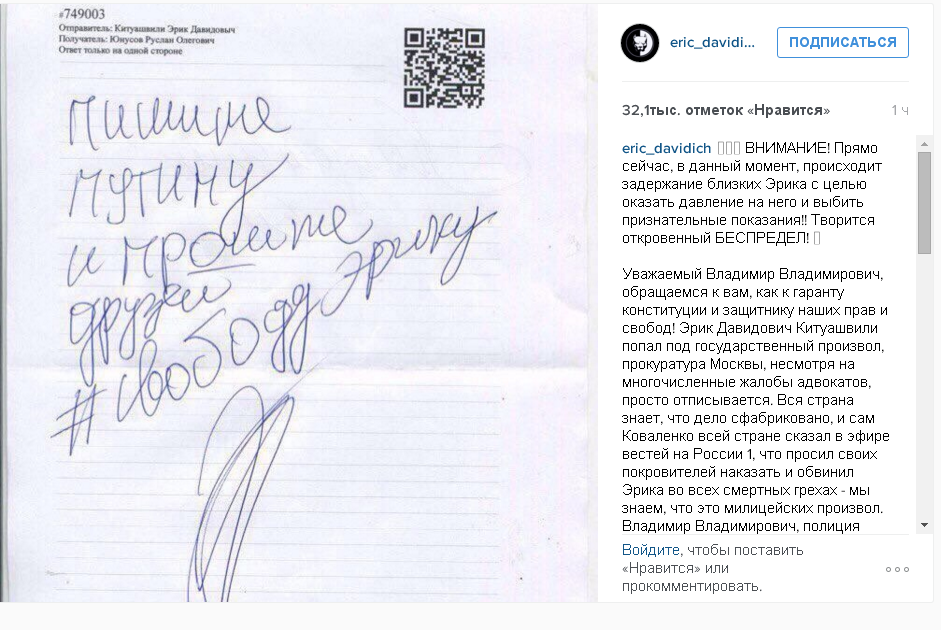 #749003
Отправитель: Китуашвили Эрик Давидовыч
Получатель: Юнусов Руслан Олегович
Ответ только на одной стороне
пишите
путину
и просите
друзья
#свободуэрику
eric_davidi...
ПОДПИСАТЬСЯ
32,1тыс. отметок «Нравится»
1 ч
eric_davidich ВНИМАНИЕ! Прямо
сейчас, в данный момент, происходит
задержание близких Эрика с целью
оказать давление на него и выбить
признательные показания!! Творится
откровенный БЕСПРЕДЕЛ!
Уважаемый Владимир Владимирович,
обращаемся к вам, как к гаранту
конституции и защитнику наших прав и
свобод! Эрик Давидович Китуашвили
попал под государственный произвол,
прокуратура Москвы, несмотря на
многочисленные жалобы адвокатов,
просто отписывается. Вся страна
знает, что дело сфабриковано, и сам
Коваленко всей стране сказал в эфире
вестей на России 1, что просил своих
покровителей наказать и обвинил
Эрика во всех смертных грехах - мы
знаем, что это милицейских произвол.
Владимир Владимирович, полиция
Войдите, чтобы поставить
«Нравится» или
прокомментировать.